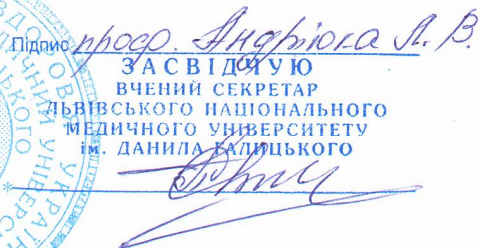 Підпис проф. Андріюка Л. В.
ЗАСВІДЧУЮ
ВЧЕНИЙ СЕКРЕТАР
ЛЬВІВСЬКОГО НАЦІОНАЛЬНОГО
МЕДИЧНОГО УНІВЕРСИТЕТУ
ім. ДАНИЛА ГАЛИЦЬКОГО